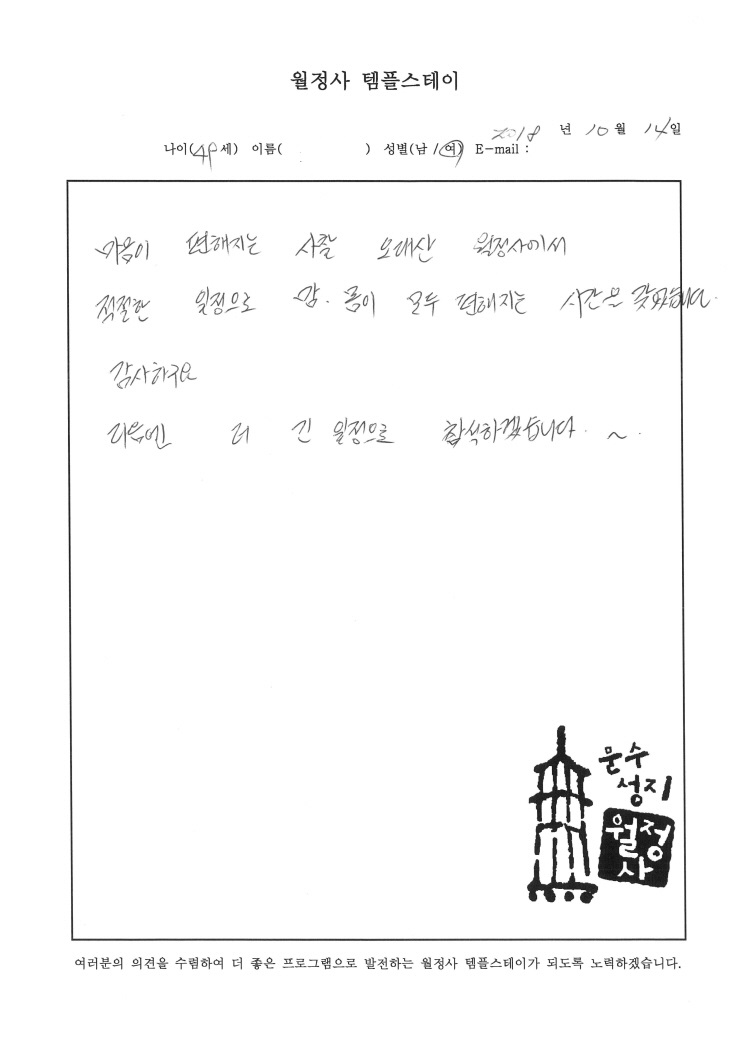 월정사 템플스테이
2018 년 10 월 14일
나이(49세) 이름( ) 성별(남 / 여) E-mail :
마음이 편해지는 사찰 오대산 월정사에서
적절한 일정으로 맘. 몸이 모두 편해지는 시간을 갖았습니다.
감사하구요
다음엔 더 긴 일정으로 참석하겠습니다. ~.
문수
성지
월정
사
여러분의 의견을 수렴하여 더 좋은 프로그램으로 발전하는 월정사 템플스테이가 되도록 노력하겠습니다.